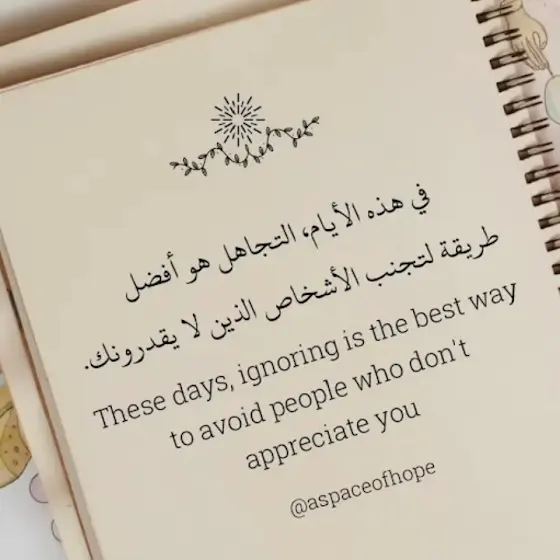 في هذه الأيام، التجاهل هو أفضل
طريقة لتجنب الأشخاص الذين لا يقدرونك.
These days, ignoring is the best way
to avoid people who don't
appreciate you
@aspaceofhope